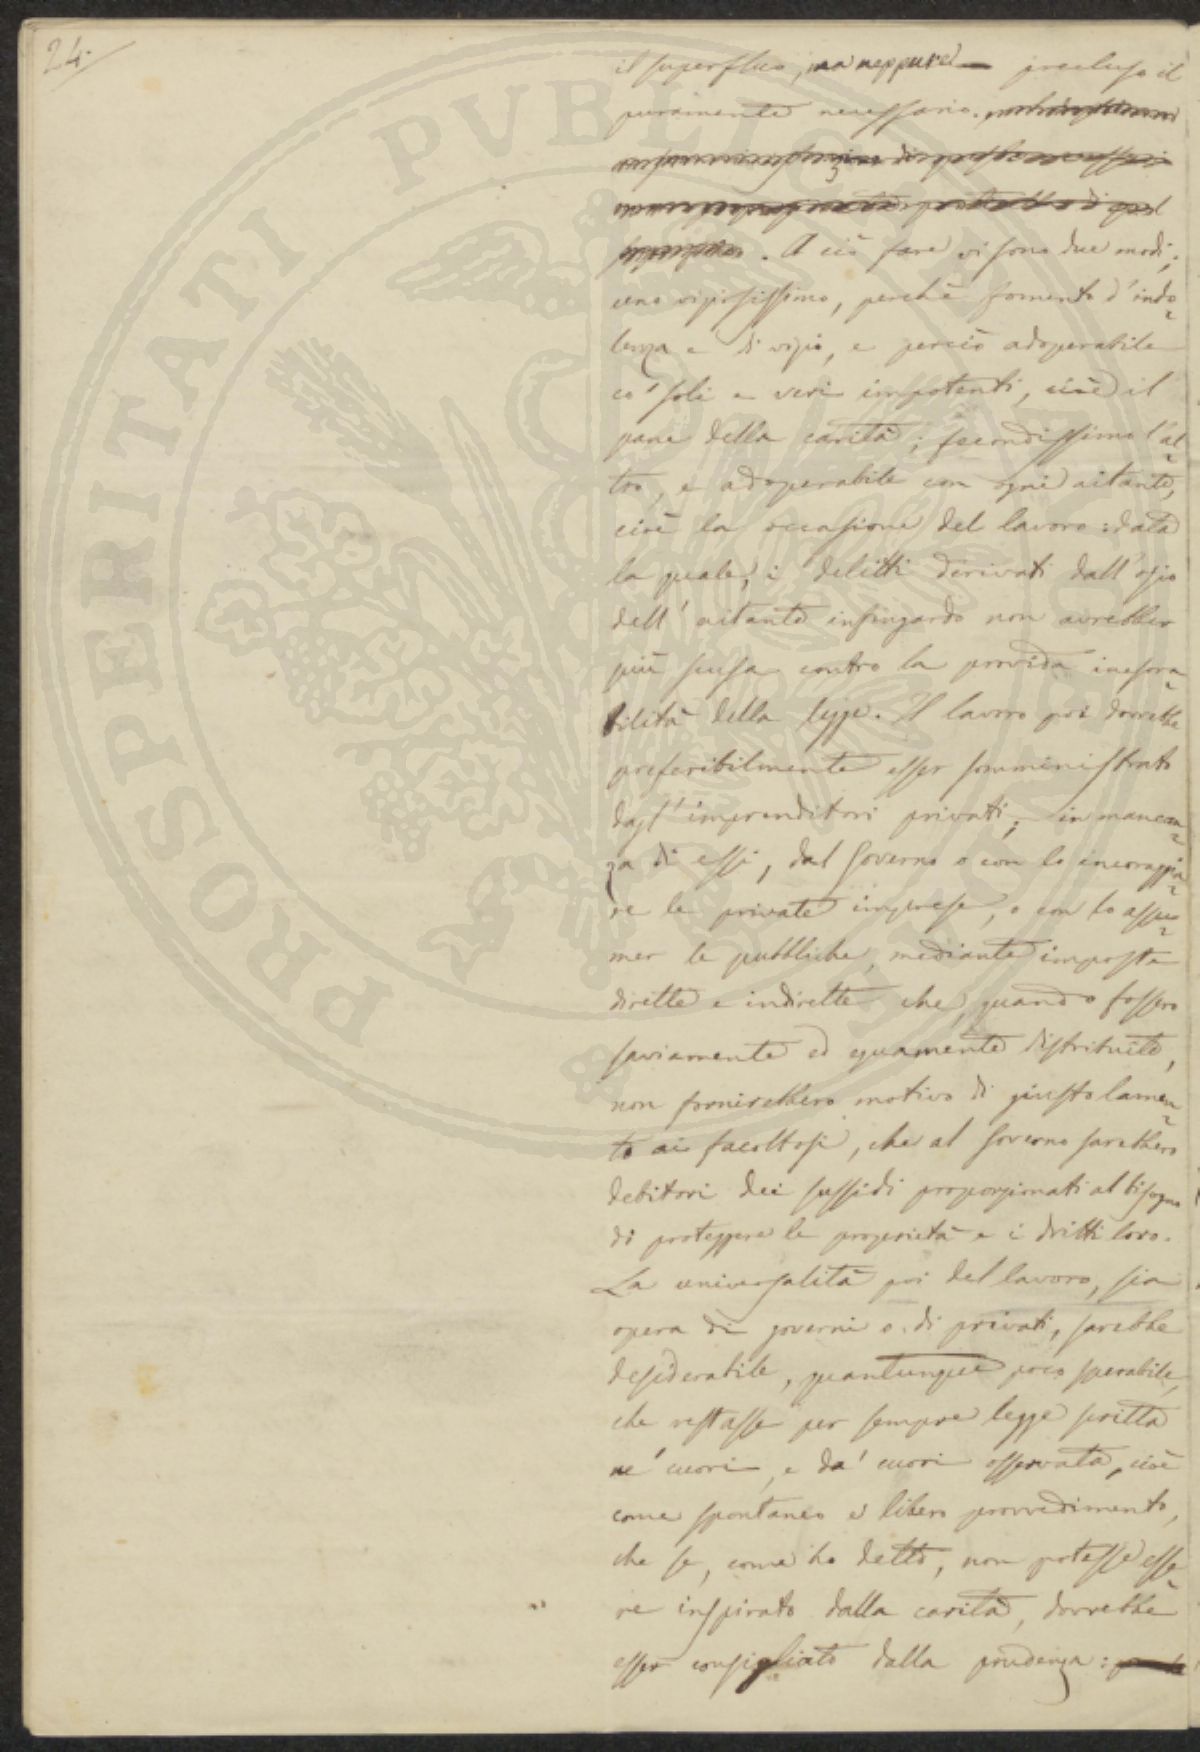 24.
il superfluo, ma neppure precluso il
puramente necessario.
di
di quel
. A ciò fare vi sono due modi;
uno viziosissimo, perchè fomento d'indo-
lenza e di vizio, e perciò adoperabile
co' soli e veri impotenti, cioè il
pane della carità; fecondissimo l'al-
tro, e adoperabile con ogni aitante,
cioè la occasione del lavoro: data
la quale, i delitti derivati dall'ozio
dell'aitante infingardo non avrebber
più scusa contro la provida inesora-
bilità della legge. Il lavoro poi dovrebbe
preferibilmente esser somministrato
dagl'imprenditori privati; in mancan-
za di essi, dal Governo o con lo incoraggia-
re le private imprese, o con lo assu-
mer le pubbliche, mediante imposte
dirette e indirette che, quando fossero
saviamente ed equamente distribuite,
non fornirebbero motivo di giusto lamen-
to ai facoltosi, che al Governo sarebbero
debitori dei sussidi proporzionati al bisogno
di proteggere le proprietà e i dritti loro.
La universalità poi del lavoro, sia
opera di governi o di privati, sarebbe
desiderabile, quantunque poco sperabile,
che restasse per sempre legge scritta
ne' cuori, e da' cuori osservata, cioè
come spontaneo e libero provvedimento,
che se, come ho detto, non potesse esse-
re inspirato dalla carità, dovrebbe
esser consigliato dalla prudenza:
PROSPERITATI PVBLICAE